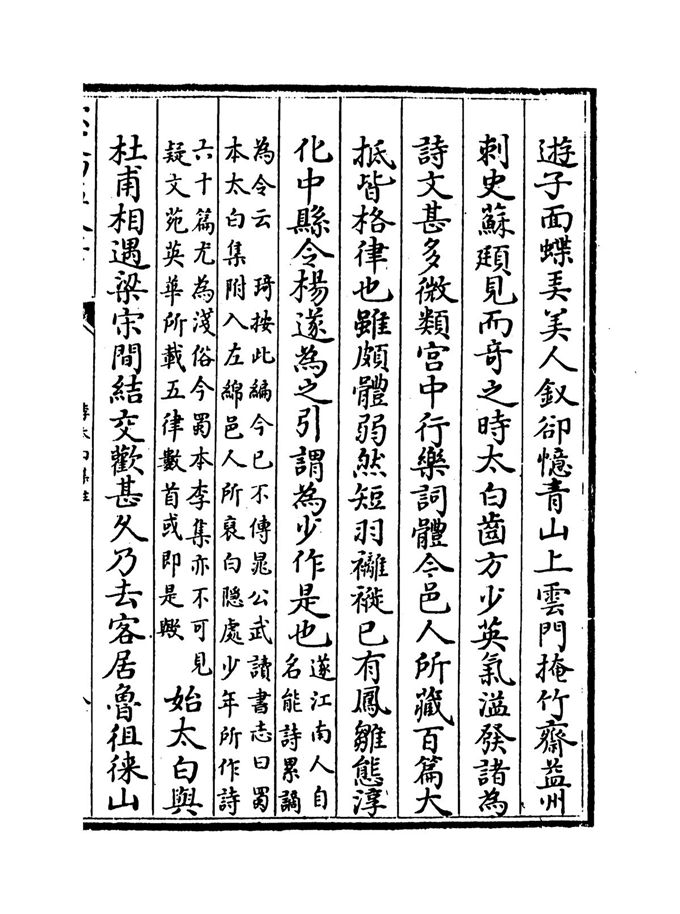 遊子面蝶弄美人釵卻憶青山上雲門掩竹齋益州
刺史蘇頲見而奇之時太白齒方少英氣溢發諸為
詩文甚多微類宮中行樂詞體今邑人所藏百篇大
抵皆格律也雖頗體弱然短羽褵褷已有鳳雛態淳
化中縣令楊遂為之引謂為少作是也
遂江南人自
名能詩累謫
為令云　琦按此編今已不傳晁公武讀書志曰蜀
本太白集附入左綿邑人所裒白隱處少年所作詩
六十篇尤為淺俗今蜀本李集亦不可見
疑文苑英華所載五律數首或即是歟
始太白與
杜甫相遇梁宋間結交歡甚久乃去客居魯徂徠山
李太白集註
八